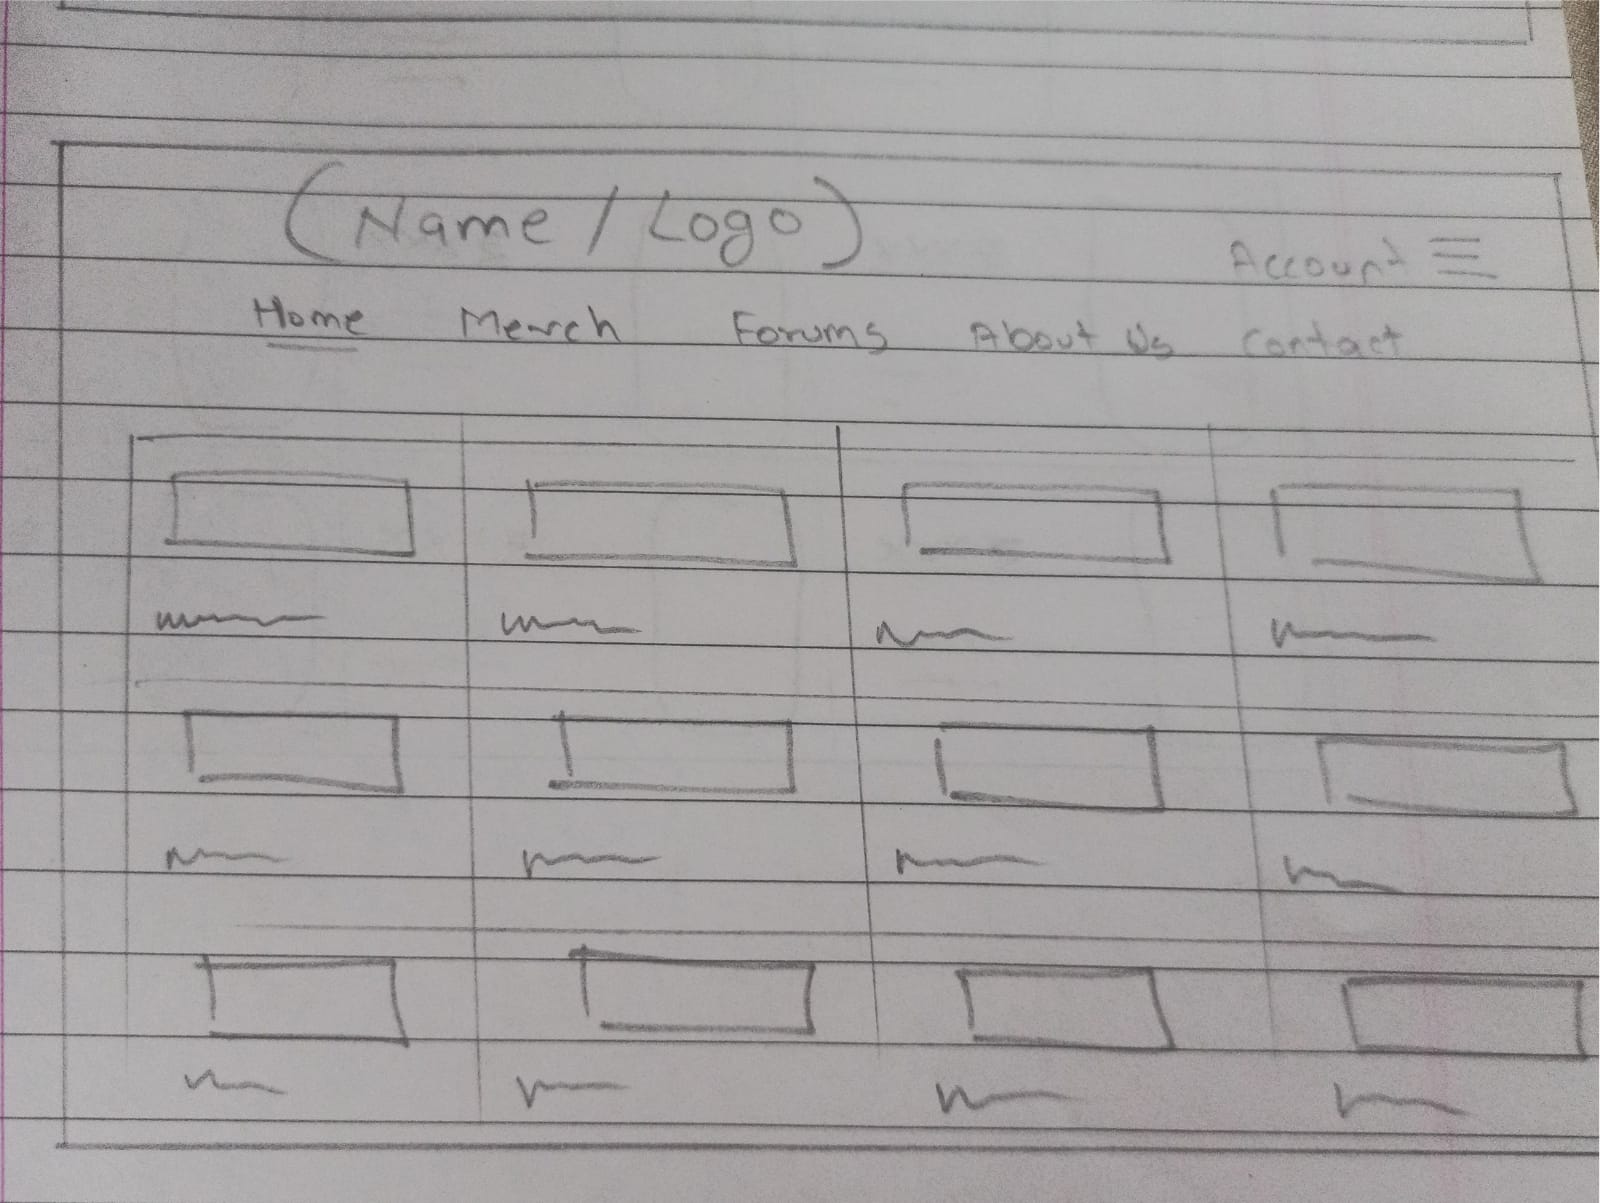 (Name / Logo)
Account
Home Merch Forums About Us Contact